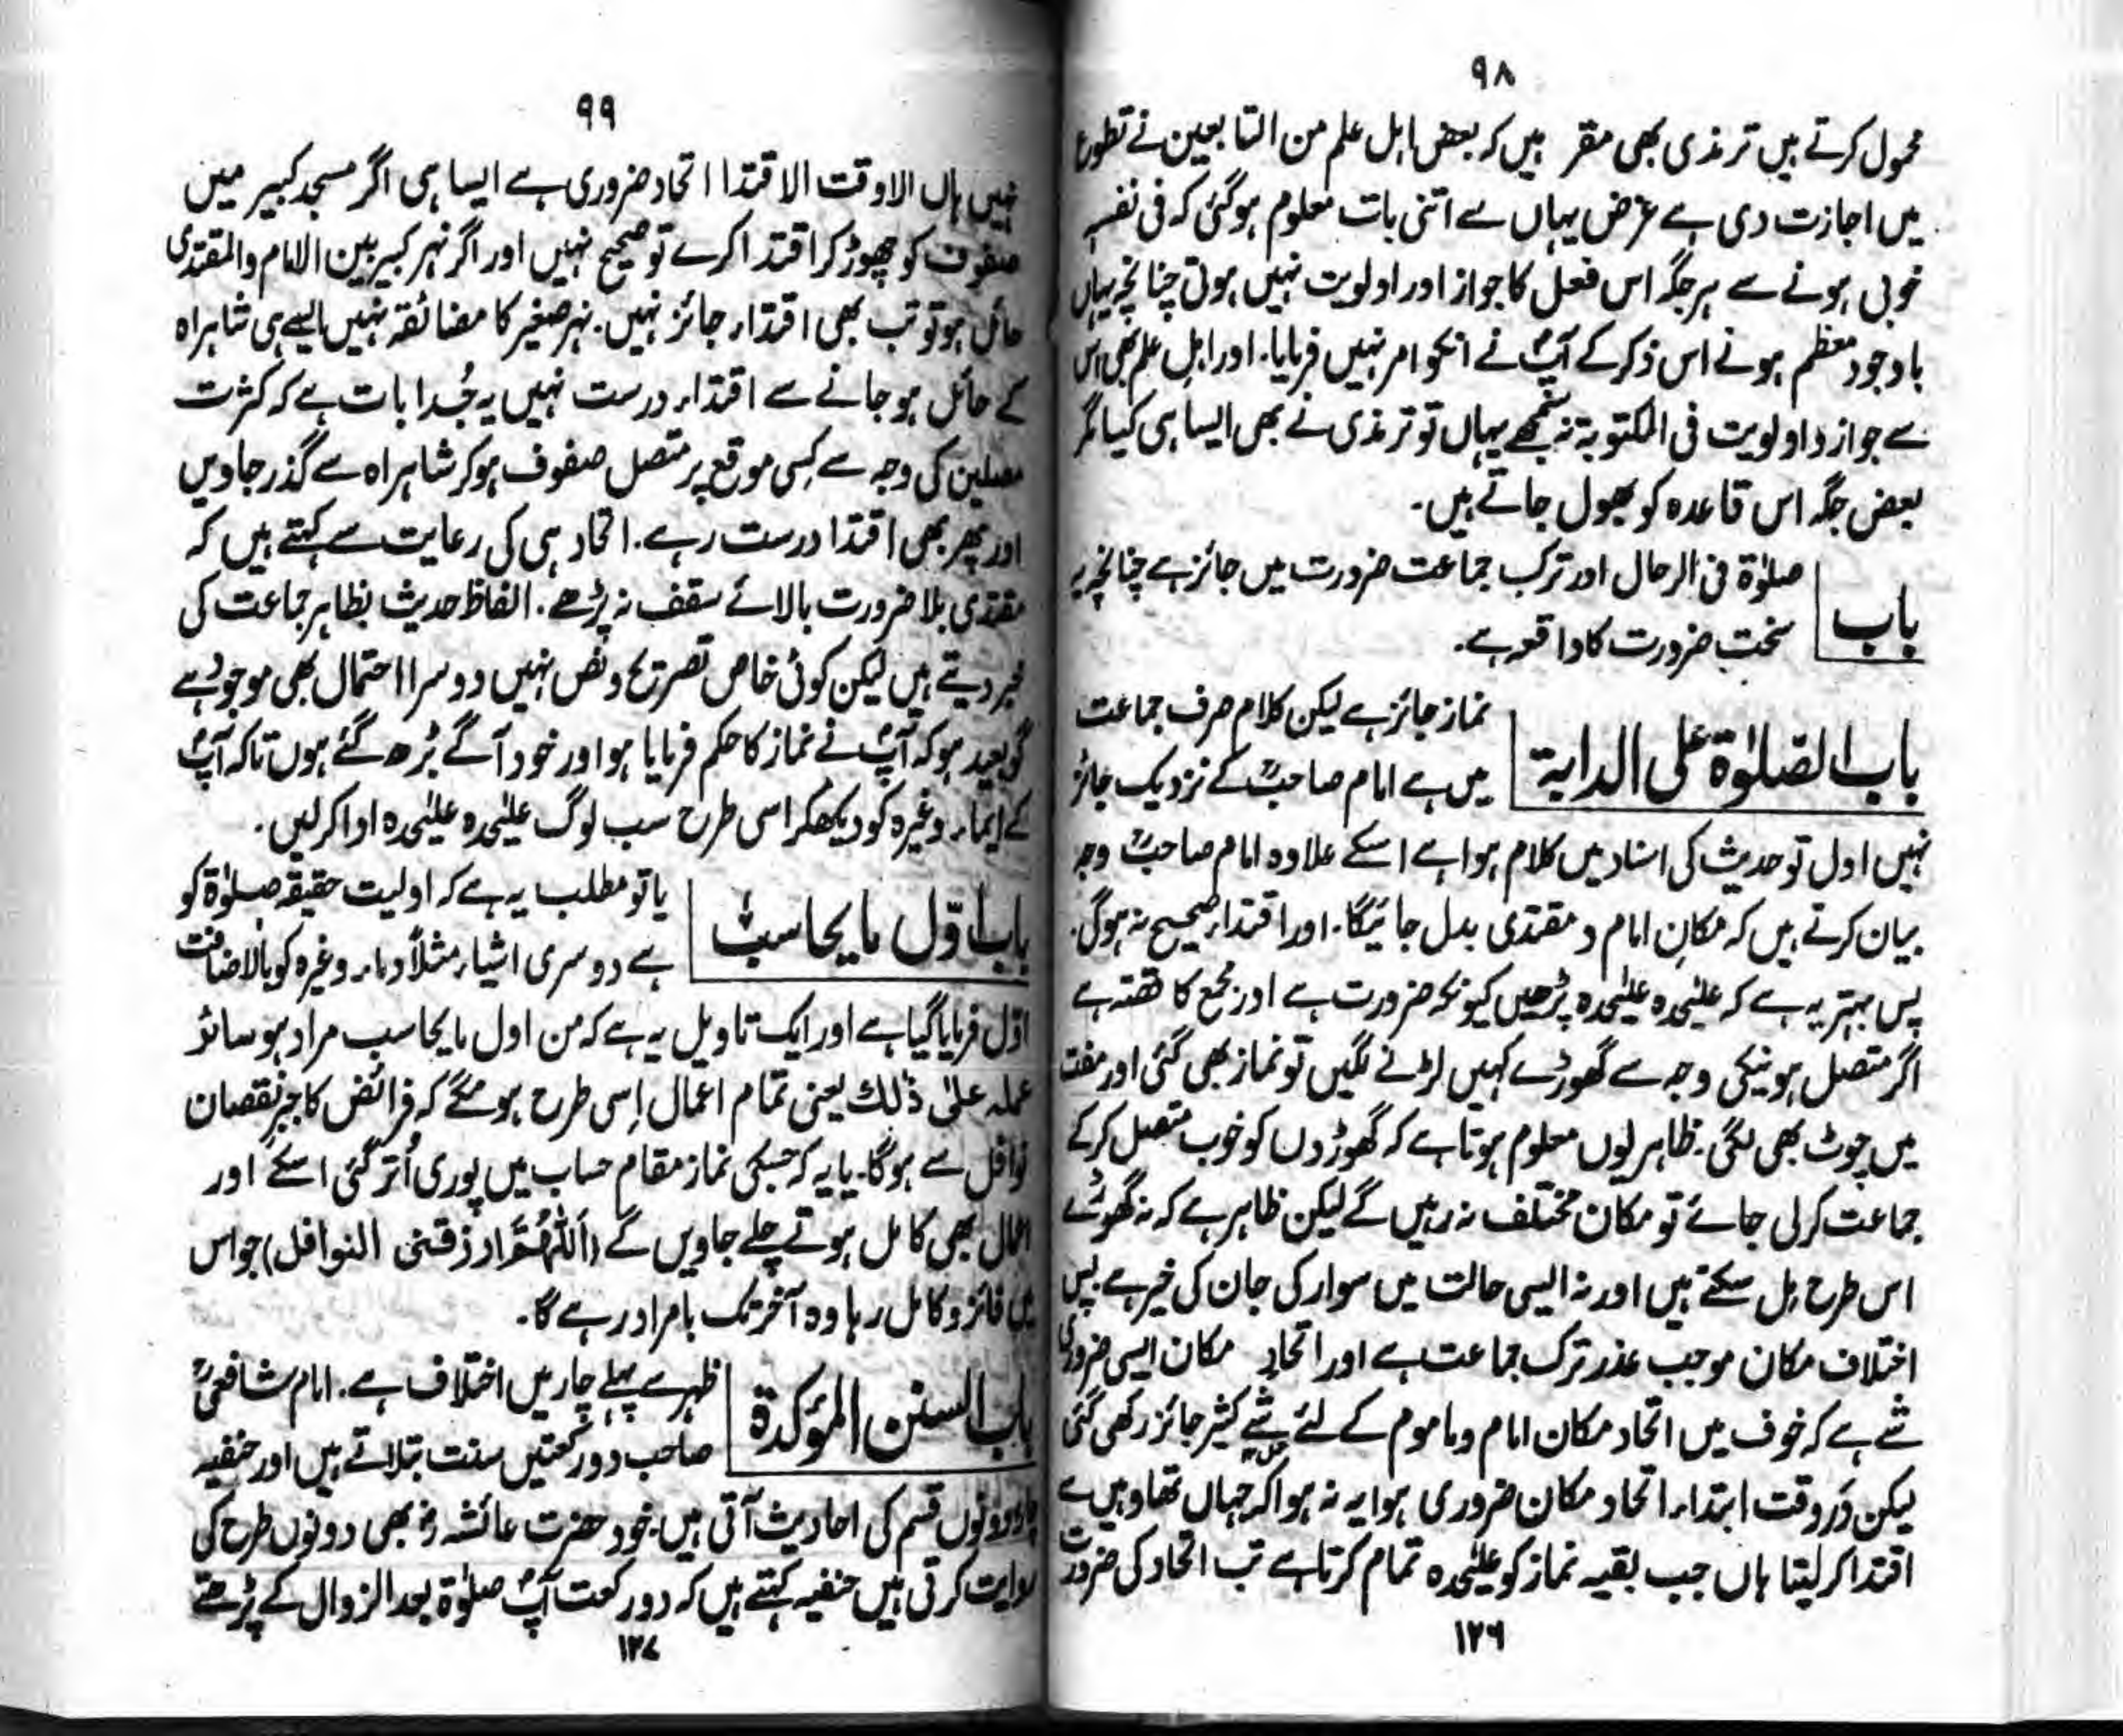 ۹۸
محمول کرتے ہیں ترمذی بھی مقر ہیں کہ بعض اہل علم من التابعین نے تطوع
میں اجازت دی ہے غرض یہاں سے اتنی بات معلوم ہوگئی کہ فی نفسہ
خوبی ہونے سے ہر جگہ اس فعل کا جواز اور اولویت نہیں ہوتی چنانچہ یہاں
باوجود معظم ہونے اس ذکر کے آپؐ نے انکو امر نہیں فرمایا۔ اور اہل علم بھی اس
سے جواز و اولویت فی المکتوبۃ نہ سمجھے یہاں تو ترمذی نے بھی ایسا ہی کیا مگر
بعض جگہ اس قاعدہ کو بھول جاتے ہیں۔
باب
صلوٰۃ فی الرحال اور ترک جماعت ضرورت میں جائز ہے چنانچہ یہ
سخت ضرورت کا واقعہ ہے۔
باب الصّلوٰۃ علی الدابۃ
نماز جائز ہے لیکن کلام صرف جماعت
میں ہے امام صاحبؒ کے نزدیک جائز
نہیں اول تو حدیث کی اسناد میں کلام ہوا ہے اسکے علاوہ امام صاحبؒ وجہ
بیان کرتے ہیں کہ مکانِ امام و مقتدی بدل جائیگا۔ اور اقتداء صحیح نہ ہوگی۔
پس بہتر یہ ہے کہ علیٰحدہ علیٰحدہ پڑھیں کیونکہ ضرورت ہے اور مجمع کا قصّہ ہے
اگر متصل ہونیکی وجہ سے گھوڑے کہیں لڑنے لگیں تو نماز بھی گئی اور مفت
میں چوٹ بھی لگی۔ ظاہر یوں معلوم ہوتا ہے کہ گھوڑوں کو خوب متصل کرکے
جماعت کرلی جائے تو مکان مختلف نہ رہیں گے لیکن ظاہر ہے کہ نہ گھوڑے
اس طرح مل سکتے ہیں اور نہ ایسی حالت میں سوار کی جان کی خیر ہے پس
اختلاف مکان موجب عذر ترک جماعت ہے اور اتحادِ مکان ایسی ضروری
شے ہے کہ خوف میں اتحاد مکان امام و ماموم کے لئے مشے کثیر جائز رکھی گئی
لیکن دَر وقت ابتداء اتحاد مکان ضروری ہوا یہ نہ ہوا کہ جہاں تھا وہیں سے
اقتدا کر لیتا ہاں جب بقیہ نماز کو علیٰحدہ تمام کرتا ہے تب اتحاد کی ضرورت
۱۲۶
۹۹
نہیں ہاں الا وقت الاقتدا اتحاد ضروری ہے ایسا ہی اگر مسجد کبیر میں
صفوف کو چھوڑ کر اقتدا کرے تو صحیح نہیں اور اگر نہر کبیر بین الامام والمقتدی
حائل ہو تو تب بھی اقتداء جائز نہیں۔ نہر صغیر کا مضائقہ نہیں ایسے ہی شاہراہ
کے حائل ہو جانے سے اقتداء درست نہیں یہ جُدا بات ہے کہ کثرت
مصلین کی وجہ سے کسی موقع پر متصل صفوف ہوکر شاہراہ سے گذر جاویں
اور پھر بھی اقتدا درست رہے۔ اتحاد ہی کی رعایت سے کہتے ہیں کہ
مقتدی بلا ضرورت بالائے سقف نہ پڑھے۔ الفاظ حدیث بظاہر جماعت کی
خبر دیتے ہیں لیکن کوئی خاص تصریح و نص نہیں دوسرا احتمال بھی موجود ہے
گو بعید ہو کہ آپؐ نے نماز کا حکم فرمایا ہو اور خود آگے بڑھ گئے ہوں تاکہ آپؐ
کے ایماء وغیرہ کو دیکھکر اسی طرح سب لوگ علیٰحدہ علیٰحدہ ادا کرلیں۔
باب اوّل ما یحاسب
یا تو مطلب یہ ہے کہ اولیت حقیقۃ صلوٰۃ کو
ہے دوسری اشیاء مثلاً دماء وغیرہ کو بالاضافت
اوّل فرمایا گیا ہے اور ایک تاویل یہ ہے کہ من اول ما یحاسب مراد ہو سائر
عملہ علیٰ ذٰلک یعنی تمام اعمال اِسی طرح ہونگے کہ فرائض کا جبرِ نقصان
نوافل سے ہوگا۔ یا یہ کہ جسکی نماز مقام حساب میں پوری اُتر گئی اسکے اور
اعمال بھی کامل ہوتے چلے جاویں گے (اَللّٰھُمَّ ارزقنی النوافل) جو اس
میں فائز و کامل رہا وہ آخر تک بامراد رہے گا۔
باب السنن المؤکدۃ
ظہر سے پہلے چار میں اختلاف ہے۔ امام شافعیؒ
صاحب دو رکعتیں سنت بتلاتے ہیں اور حنفیہ
چار دونوں قسم کی احادیث آتی ہیں۔ خود حضرت عائشہ رضؓ بھی دونوں طرح کی
روایت کرتی ہیں حنفیہ کہتے ہیں کہ دو رکعت آپؐ صلوٰۃ بعد الزوال کے پڑھتے
۱۲۷